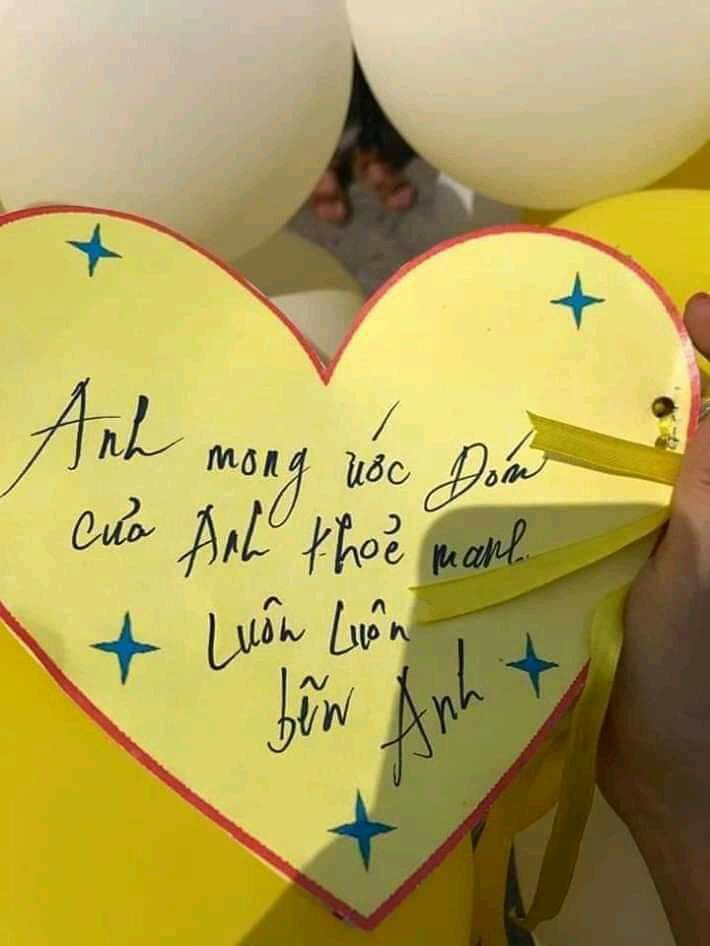 Anh mong ước Đóm
của Anh khoẻ mạnh
Luôn Luôn
bên Anh